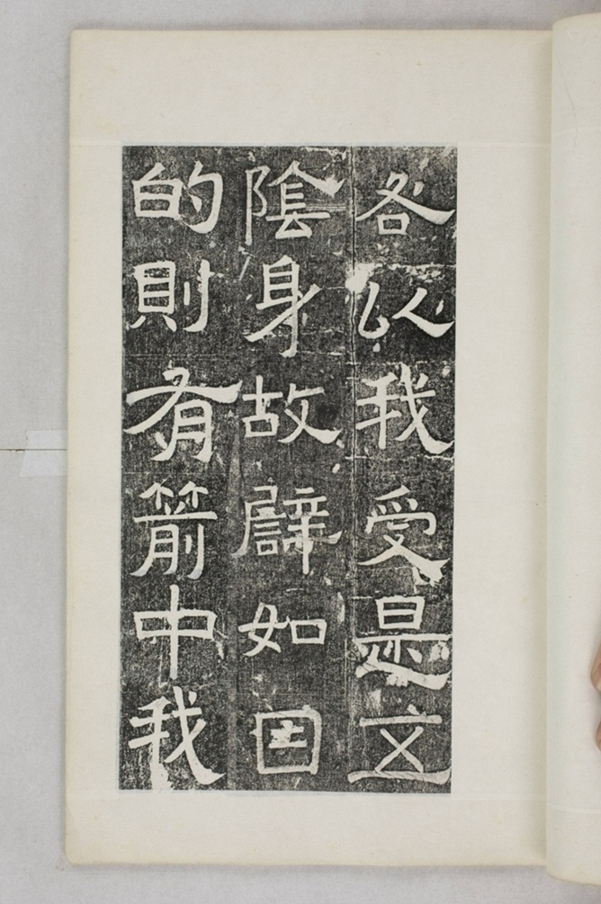 咎以我受是五
陰身故辟如因
的則有箭中我